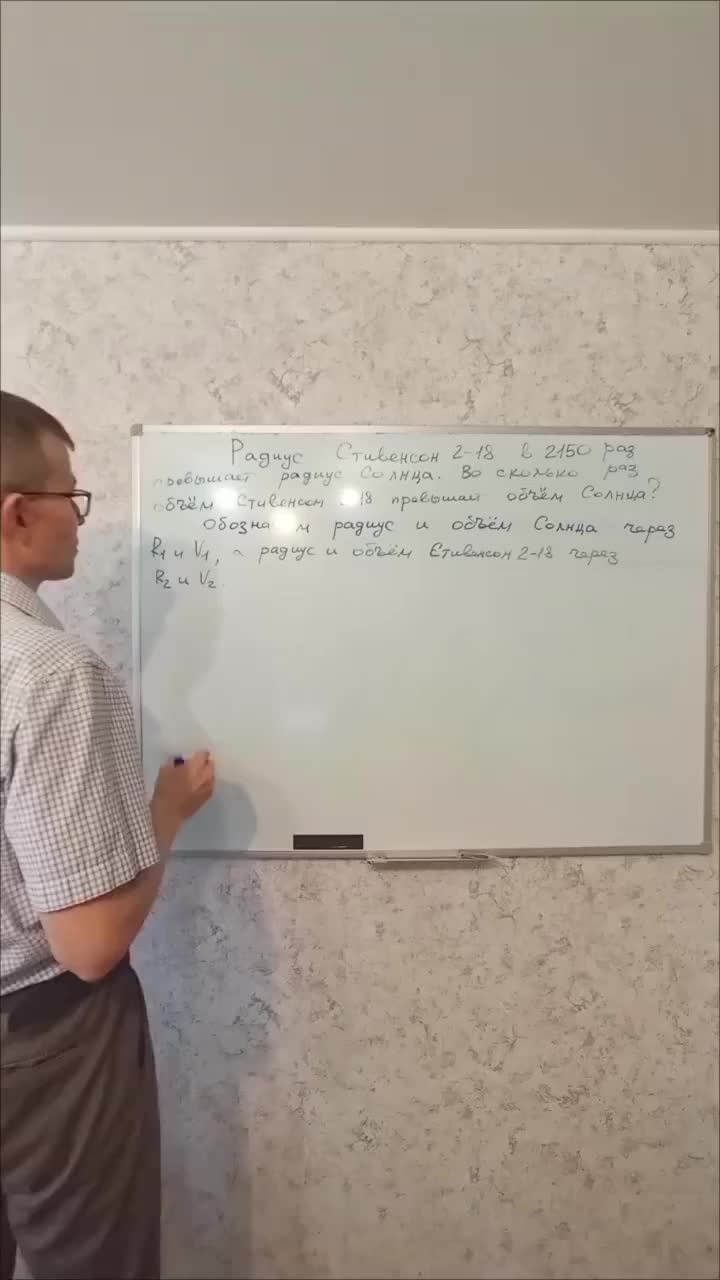 Радиус Стивенсон 2-18 в 2150 раз
превышает радиус Солнца. Во сколько раз
объём Стивенсон 2-18 превышает объём Солнца?
Обозна м радиус и объём Солнца через
R₁ и V₁, а радиус и объём Стивенсон 2-18 через
R₂ и V₂.